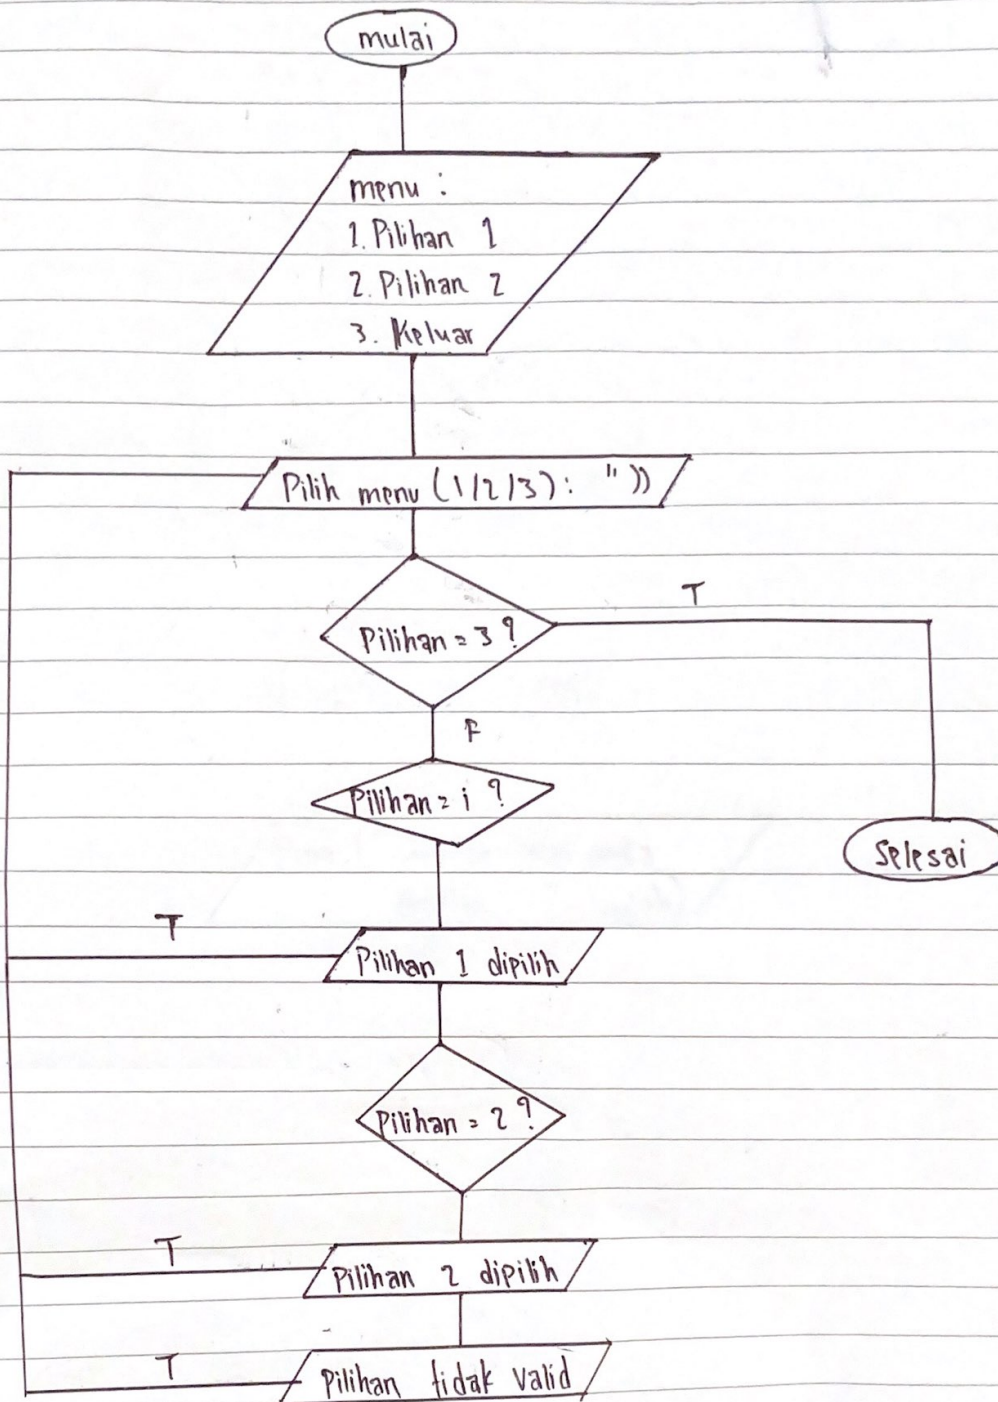 mulai
menu :
1. Pilihan 1
2. Pilihan 2
3. Keluar
Pilih menu (1/2/3): " ))
T
Pilihan = 3 ?
F
Pilihan = i ?
Selesai
T
Pilihan 1 dipilih
Pilihan = 2 ?
T
Pilihan 2 dipilih
T
Pilihan tidak valid